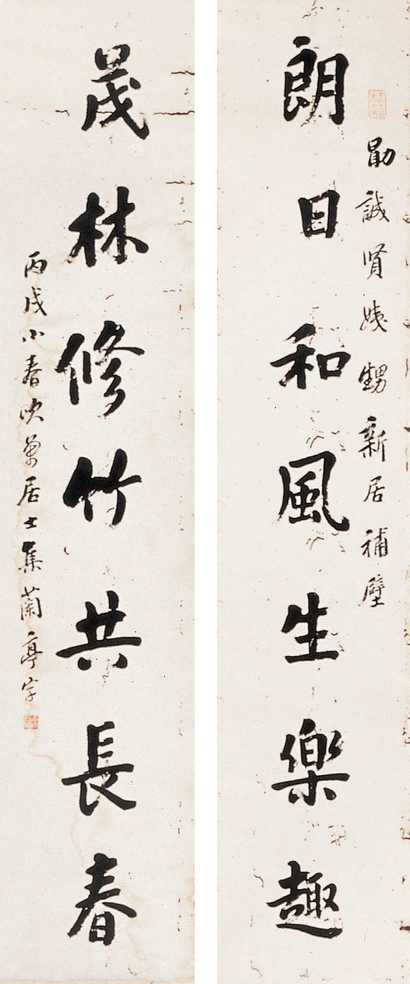 勛誠賢姨甥新居補壁
朗日和風生樂趣
茂林修竹共長春
丙戌小春
居士集蘭亭字